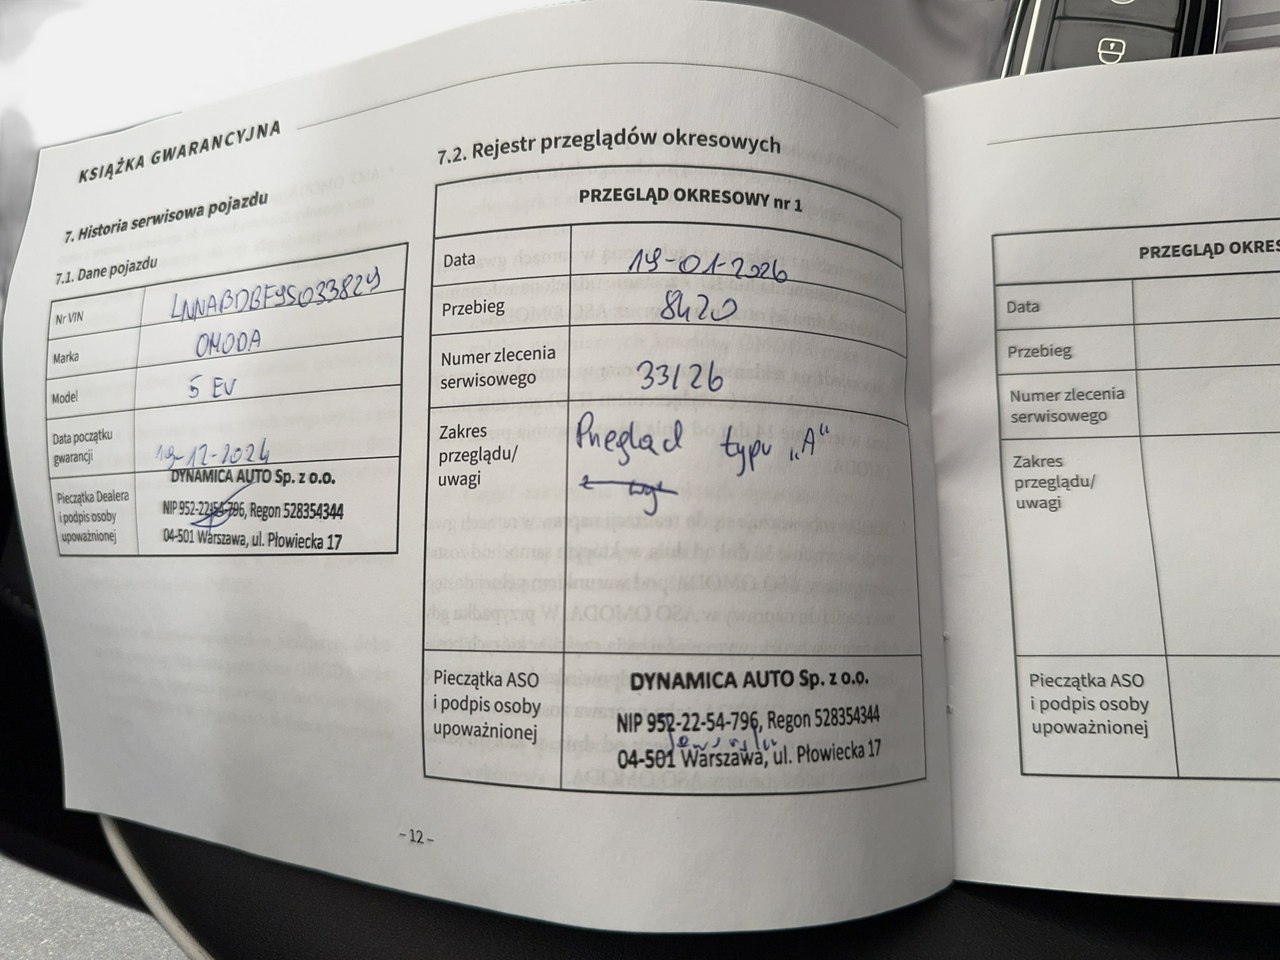 KSIĄŻKA GWARANCYJNA
7. Historia serwisowa pojazdu
7.1. Dane pojazdu
Nr VIN
Marka OMODA
Model 5 EV
Data początku gwarancji 19-12-2024
Pieczątka Dealera
i podpis osoby
upoważnionej
DYNAMICA AUTO Sp. z o.o.
NIP 952-22-54-796, Regon 528354344
04-501 Warszawa, ul. Płowiecka 17
7.2. Rejestr przeglądów okresowych
PRZEGLĄD OKRESOWY nr 1
Data 19-01-2026
Przebieg 8420
Numer zlecenia
serwisowego
33/26
Zakres
przeglądu/
uwagi
Przegląd typu „A"
Pieczątka ASO
i podpis osoby
upoważnionej
DYNAMICA AUTO Sp. z o.o.
NIP 952-22-54-796, Regon 528354344
04-501 Warszawa, ul. Płowiecka 17
- 12 -
PRZEGLĄD OKRES
Data
Przebieg
Numer zlecenia
serwisowego
Zakres
przeglądu/
uwagi
Pieczątka ASO
i podpis osoby
upoważnionej